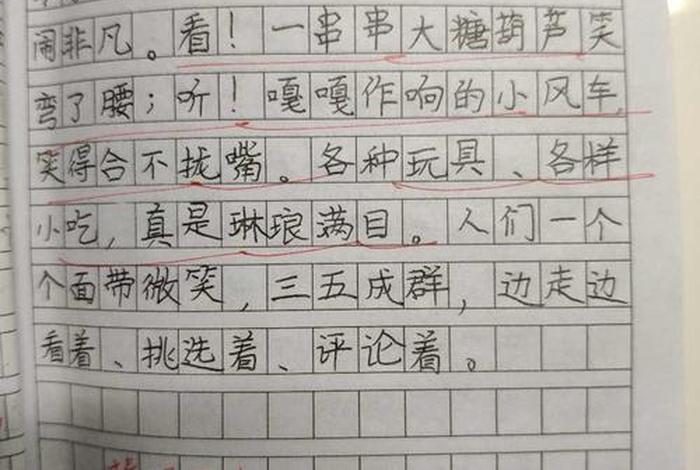 闹非凡。看！一串串大糖葫芦笑
弯了腰；听！嘎嘎作响的小风车
笑得合不拢嘴。各种玩具、各样
小吃，真是琳琅满目。人们一个
个面带微笑，三五成群，边走边
看着、挑选着、评论着。